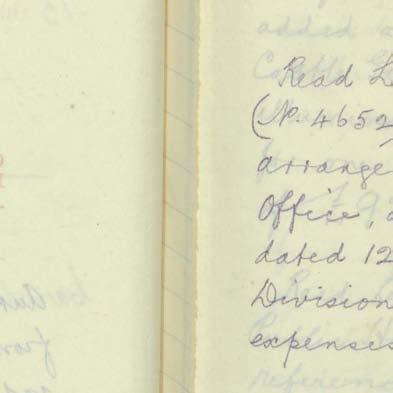 Read L
(No. 4652
arrange
Office,
dated 12
Division
expenses